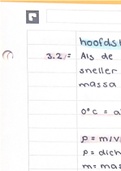 hoofds
3.2
Als de
sneller
massa
0°c = a
p = m/v
p = dich
m = mas